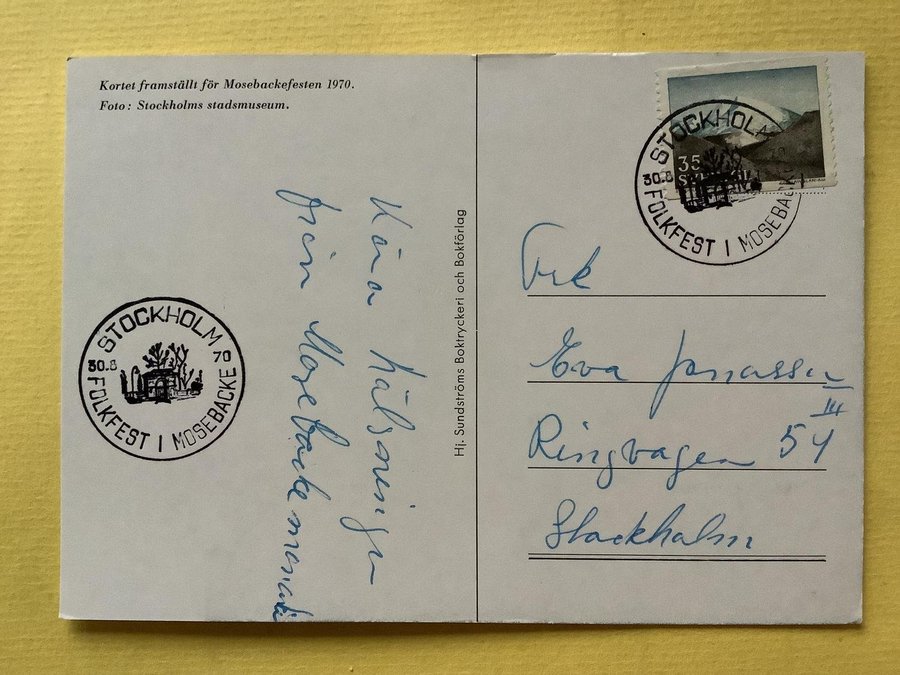 Kortet framställt för Mosebackefesten 1970.
Foto: Stockholms stadsmuseum.
Kära hälsningar
från Mosebacke
Hj. Sundströms Boktryckeri och Bokförlag
STOCKHOLM
30.8 70
FOLKFEST I MOSEBACKE
35
SVERIGE
STOCKHOLM
30.8 70
FOLKFEST I MOSEBACKE
Frk
Eva Jonasson
III
Ringvägen 54
Stockholm